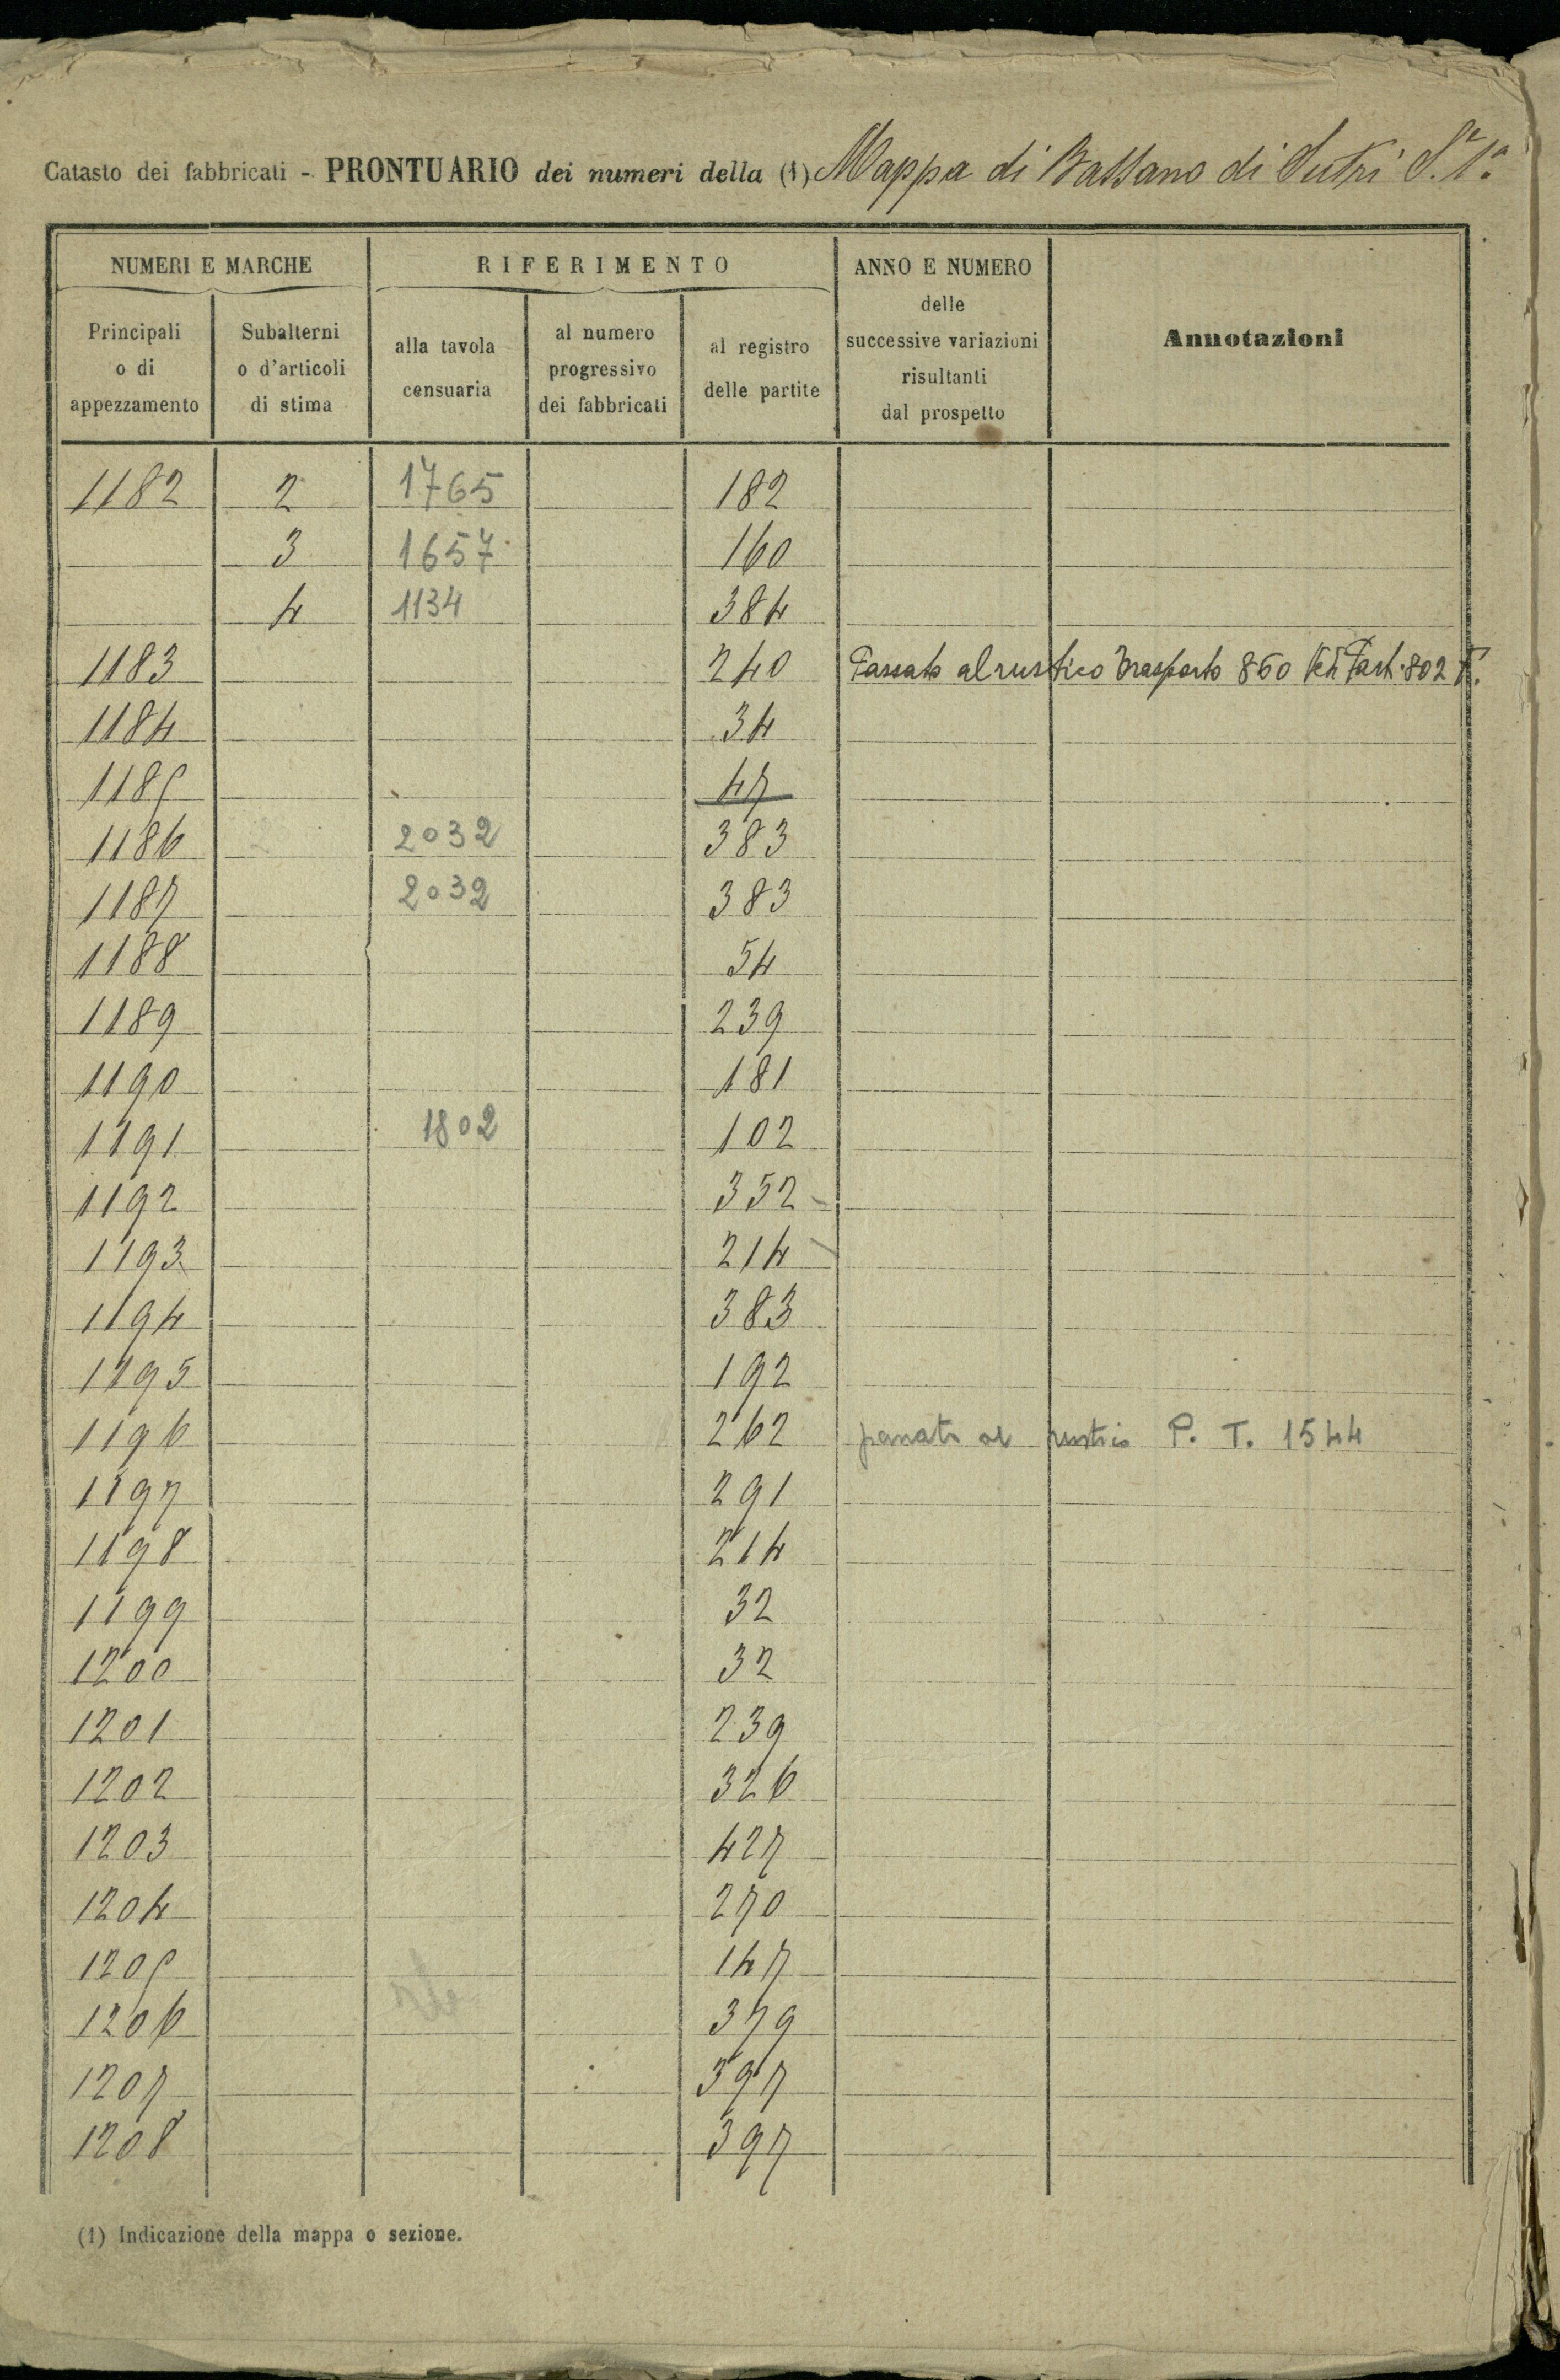 Catasto dei fabbricati - PRONTUARIO dei numeri della (1) Mappa di Bassano di Sutri S.e 1.a
NUMERI E MARCHE
RIFERIMENTO
ANNO E NUMERO
delle
successive variazioni
risultanti
dal prospetto
Annotazioni
Principali
o di
appezzamento
Subalterni
o d'articoli
di stima
alla tavola
censuaria
al numero
progressivo
dei fabbricati
al registro
delle partite
1182 2 1765 182
3 1657 160
4 1134 384
1183 240 Passato al rustico Trasporto 860 Part. 802
1184 34
1185 47
1186 2032 383
1187 2032 383
1188 54
1189 239
1190 181
1191 1802 102
1192 352
1193 214
1194 383
1195 192
1196 262 passato al rustico P. T. 1544
1197 291
1198 214
1199 32
1200 32
1201 239
1202 326
1203 427
1204 270
1205 147
1206 379
1207 397
1208 397
(1) Indicazione della mappa o sezione.